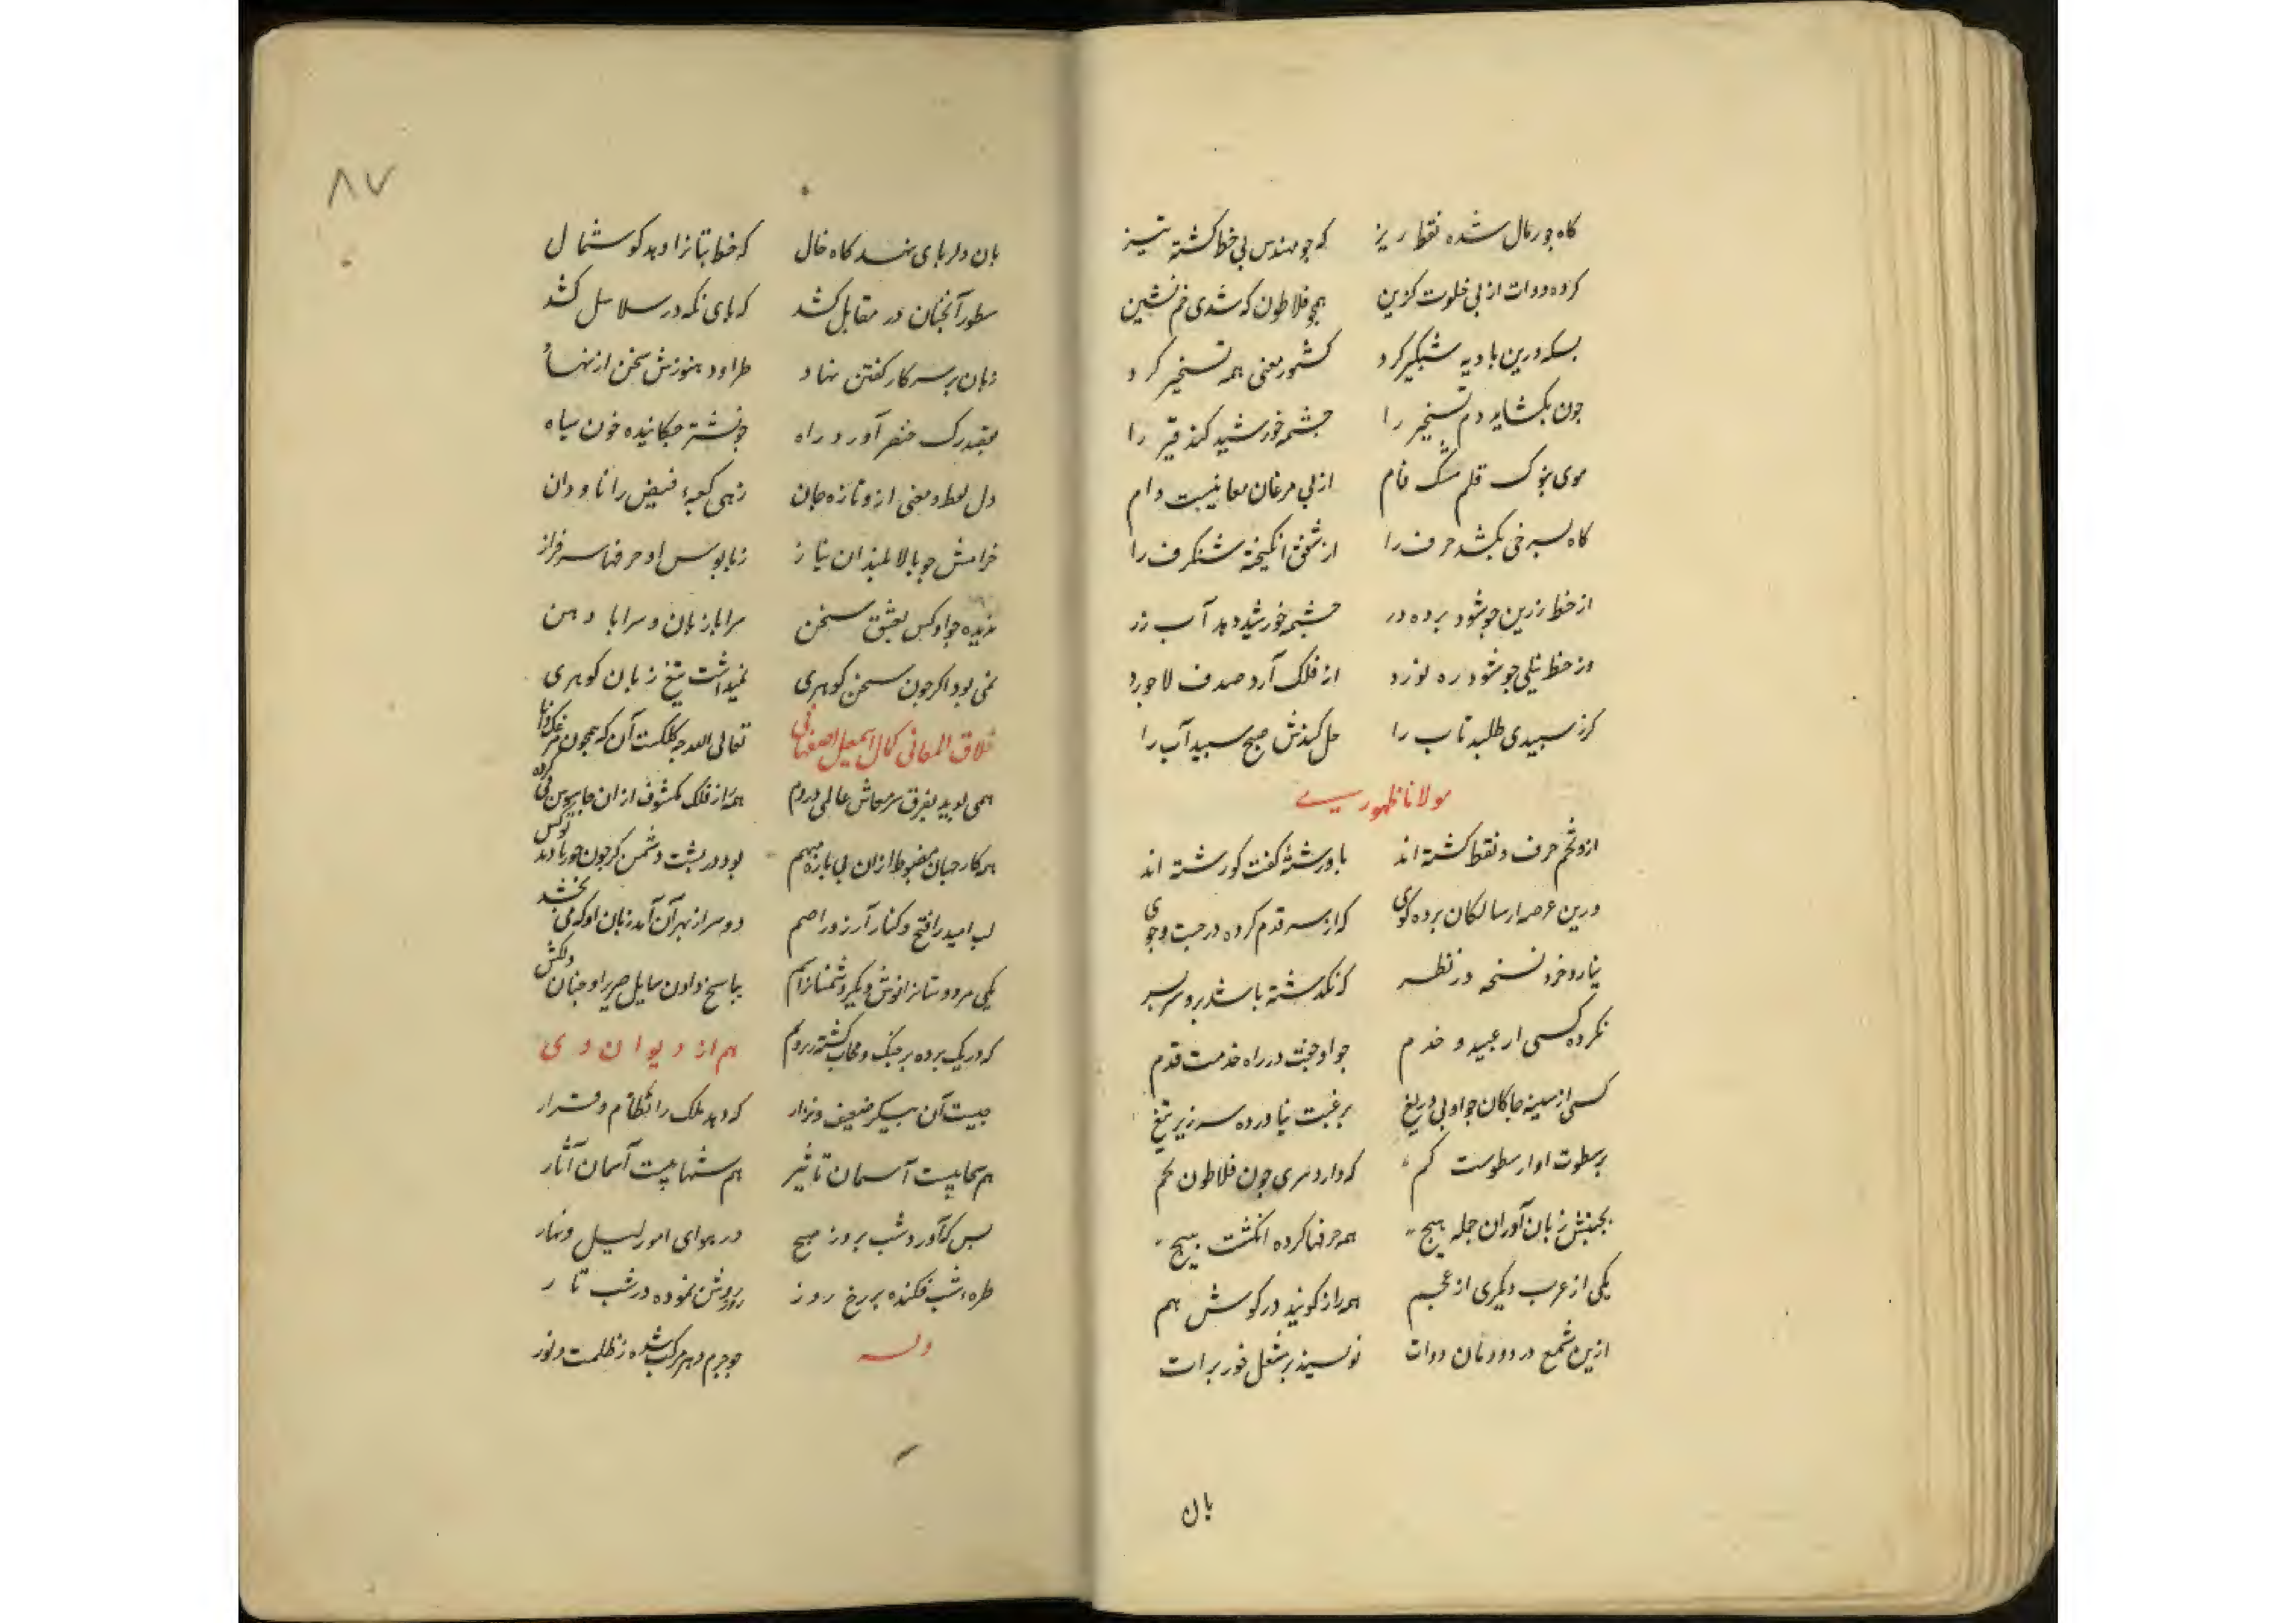 کاه جو رمال شده نقطه ریز که جو مهندس پی خط کشته تیز
کرده دوات از پی خلوت کزین همچو فلاطون که شدی خم نشین
بسکه درین بادیه شبکیر کرد کشور معنی همه تسخیر کرد
جون بکشاید دم تسخیر را جشمه خورشید کند قیر را
موی بنوک قلم مشک فام از پی مرغان معانیست دام
کاه بسرخی بکشد حرف را از شفق انکیخته شنکرف را
از خط زرین جو شود برده در جشمه خورشید دهد آب زر
وز خط نیلی جو شود ره نورد از فلک آرد صدف لاجورد
کز سپیدی طلبد تاب را حل کندش صبح سپید آب را
مولانا ظهوری
ازو تخم حرف و نقط کشته اند
درین عرصه از سالکان برده کوی که از سر قدم کرده در جست و جوی
نیارد خرد نسخه در نظر که نکذشته باشد برو سر بسر
نکرده کسی از عبید و خدم جو او جفت در راه خدمت قدم
کسی از سینه جاکان جو او بی دریغ برغبت نیاورده سر زیر تیغ
بر سطوت او ارسطوست کم که دارد سری جون فلاطون بخم
بجنبش زبان آوران جمله هیج همه حرفها کرده انکشت پیج
یکی از عرب دیکری از عجم همه راز کویند در کوش هم
ازین شمع در دودمان دوات نویسند بر مشعل خور برات
بان
۸۷
بان دلربای نهد کاه خال که خط بتانرا دهد کوشمال
سطور آنجنان در مقابل کشد که پای نکه در سلاسل کشد
زبان بر سر کار کفتن نهاد طراود هنوزش سخن از نهاد
بقصد رک خنصر آورد راه جو نشتر جکانیده خون سیاه
دل لفظ و معنی ازو تازه جان زهی کعبهٔ فیض را ناودان
خرامش جو بالا بلندان بناز زپابوس او حرفها سرفراز
ندیده جو او کس بعشق سخن سراپا زبان و سراپا دهن
نمی بود اکر جون سخن کوهری نمیداشت تیغ زبان کوهری
خلاق المعانی کمال اسمعیل اصفهانی تعالی الله جه کلکست آن که همجون
همی پوید بفرق سر معاش عالمی در دم
همه کار جهان مضبوط ازان بود در پشت دشمن کر جون
لب امید را فتح و کنار آرزو را ضم دو سر از بهر آن آمد زبان او که می بخشد
بپاسخ دادن سایل صریر او جنان دلکش
که در یک برده بر جنک و هم از دیوان وی
جیست آن پیکر ضعیف و نزار که دهد ملک را نظام و قرار
هم سحابیست آسمان تاثیر هم شهابیست آسمان آثار
بس که آورد شب بروز صبح در هوای امور لیل و نهار
طرهٔ شب فکنده بر رخ روز روز روشن نموده در شب تار
وله جو جرم دهر مرکب شده ز ظلمت و نور